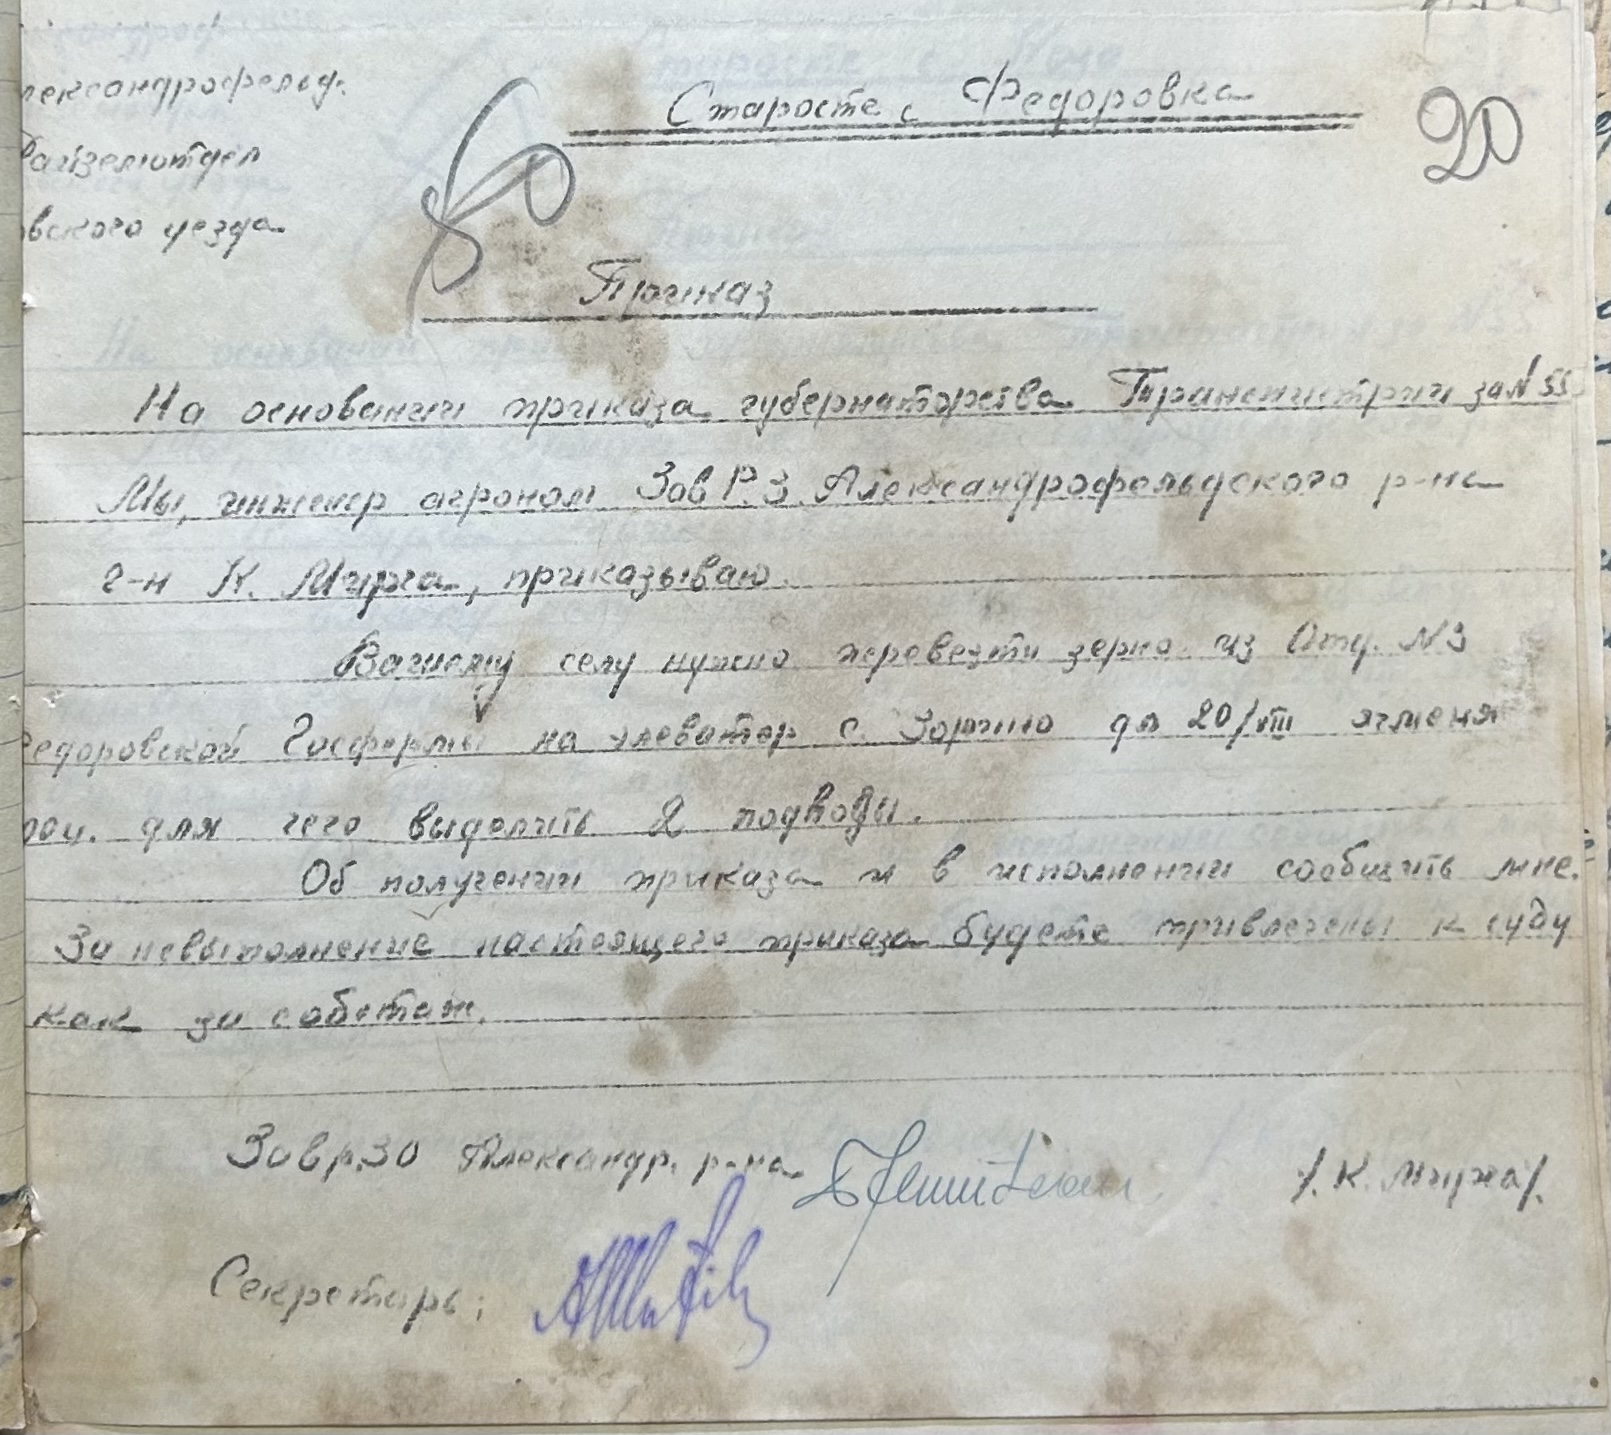 лександрофельд.
Райземотдел
овского уезда
Старосте с Федоровка
20
Приказ
На основании приказа губернаторства Транснистрии за N 55
Мы, инженер агроном Зав Р.З. Александрофельдского р-на
г-н К. Миржа, приказываю.
Вашему селу нужно перевезти зерно из Отд. N3
едоровской Госфермы на элеватор с. Зорино до 20/VIII ячменя
для чего выделить 2 подводы.
Об получении приказа и в исполнении сообщить мне.
За невыполнение настоящего приказа будете привлечены к суду
как за саботаж.
Зав р.ЗО Александр. р-на /. К. Миржа/.
Секретарь: